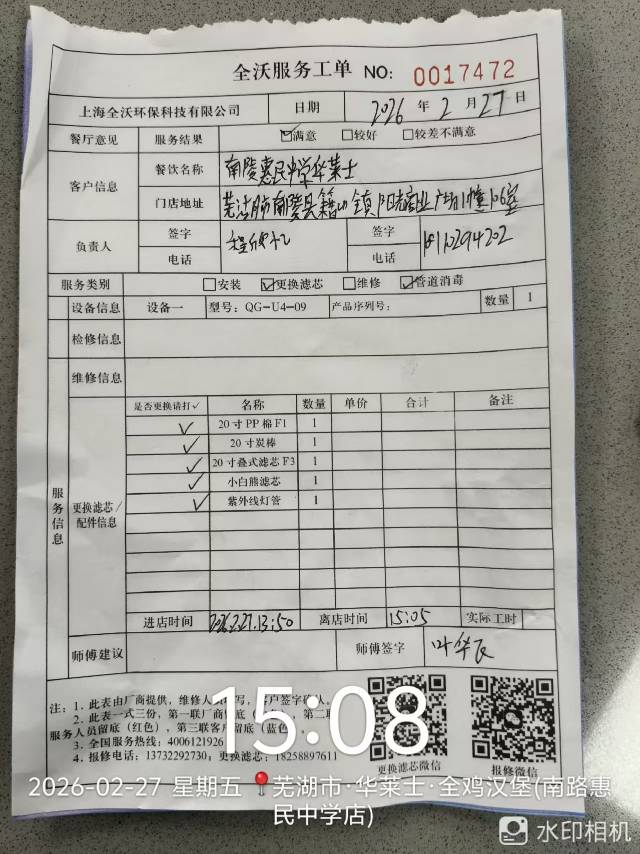 全沃服务工单 NO: 0017472
上海全沃环保科技有限公司 日期 2026 年 2 月 27 日
餐厅意见 服务结果 ☑满意 □较好 □较差不满意
客户信息 餐饮名称 南陵惠民中学华莱士
门店地址 芜湖市南陵县籍山镇阳光商业广场1幢106室
负责人 签字 签字
电话 电话 18110294202
服务类别 □安装 ☑更换滤芯 □维修 ☑管道消毒
设备信息 设备一 型号: QG-U4-09 产品序列号: 数量 1
检修信息
维修信息
服务信息
更换滤芯/配件信息
是否更换请打✓ 名称 数量 单价 合计 备注
✓ 20寸PP棉F1 1
✓ 20寸炭棒 1
✓ 20寸叠式滤芯F3 1
✓ 小白熊滤芯 1
✓ 紫外线灯管 1
进店时间 2026.2.27.13:50 离店时间 15:05 实际工时
师傅建议 师傅签字
注: 1、此表由厂商提供, 维修人员填写, 客户签字确认。
2、此表一式三份, 第一联厂商留底 第二联
服务人员留底(红色), 第三联客户留底(蓝色)
3、全国服务热线: 4006121926
4、报修电话: 13732292730; 更换滤芯: 18258897611
更换滤芯微信 报修微信
15:08
2026-02-27 星期五 芜湖市·华莱士·全鸡汉堡(南路惠
民中学店)
水印相机